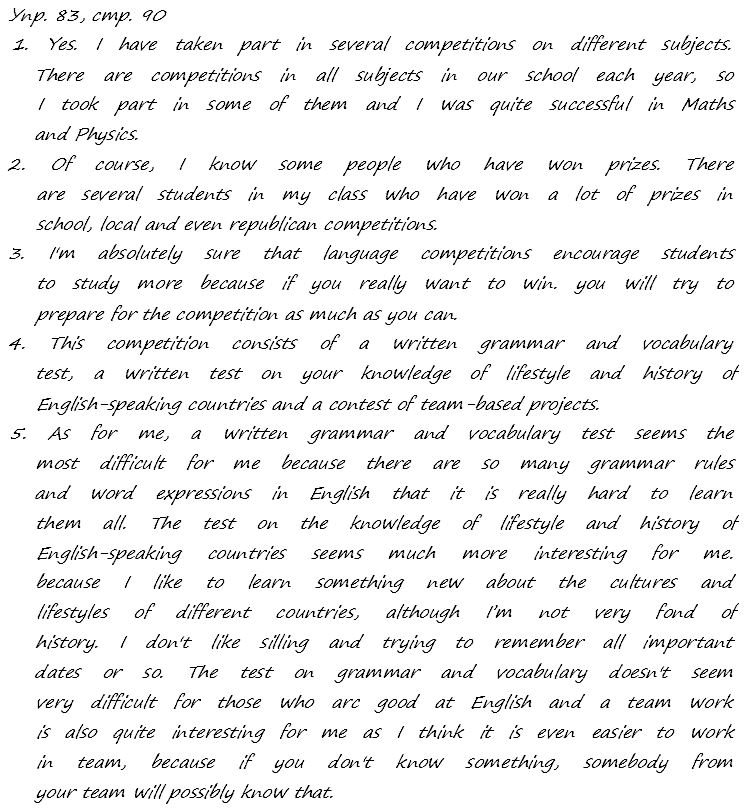 Упр. 83, стр. 90
1. Yes. I have taken part in several competitions on different subjects.
There are competitions in all subjects in our school each year, so
I took part in some of them and I was quite successful in Maths
and Physics.
2. Of course, I know some people who have won prizes. There
are several students in my class who have won a lot of prizes in
school, local and even republican competitions.
3. I'm absolutely sure that language competitions encourage students
to study more because if you really want to win. you will try to
prepare for the competition as much as you can.
4. This competition consists of a written grammar and vocabulary
test, a written test on your knowledge of lifestyle and history of
English-speaking countries and a contest of team-based projects.
5. As for me, a written grammar and vocabulary test seems the
most difficult for me because there are so many grammar rules
and word expressions in English that it is really hard to learn
them all. The test on the knowledge of lifestyle and history of
English-speaking countries seems much more interesting for me.
because I like to learn something new about the cultures and
lifestyles of different countries, although I'm not very fond of
history. I don't like silling and trying to remember all important
dates or so. The test on grammar and vocabulary doesn't seem
very difficult for those who arc good at English and a team work
is also quite interesting for me as I think it is even easier to work
in team, because if you don't know something, somebody from
your team will possibly know that.